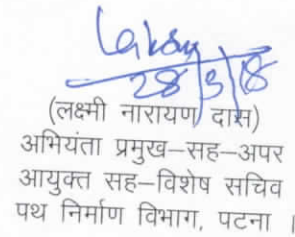 28/3/18
(लक्ष्मी नारायण दास)
अभियंता प्रमुख–सह–अपर
आयुक्त सह–विशेष सचिव
पथ निर्माण विभाग, पटना ।